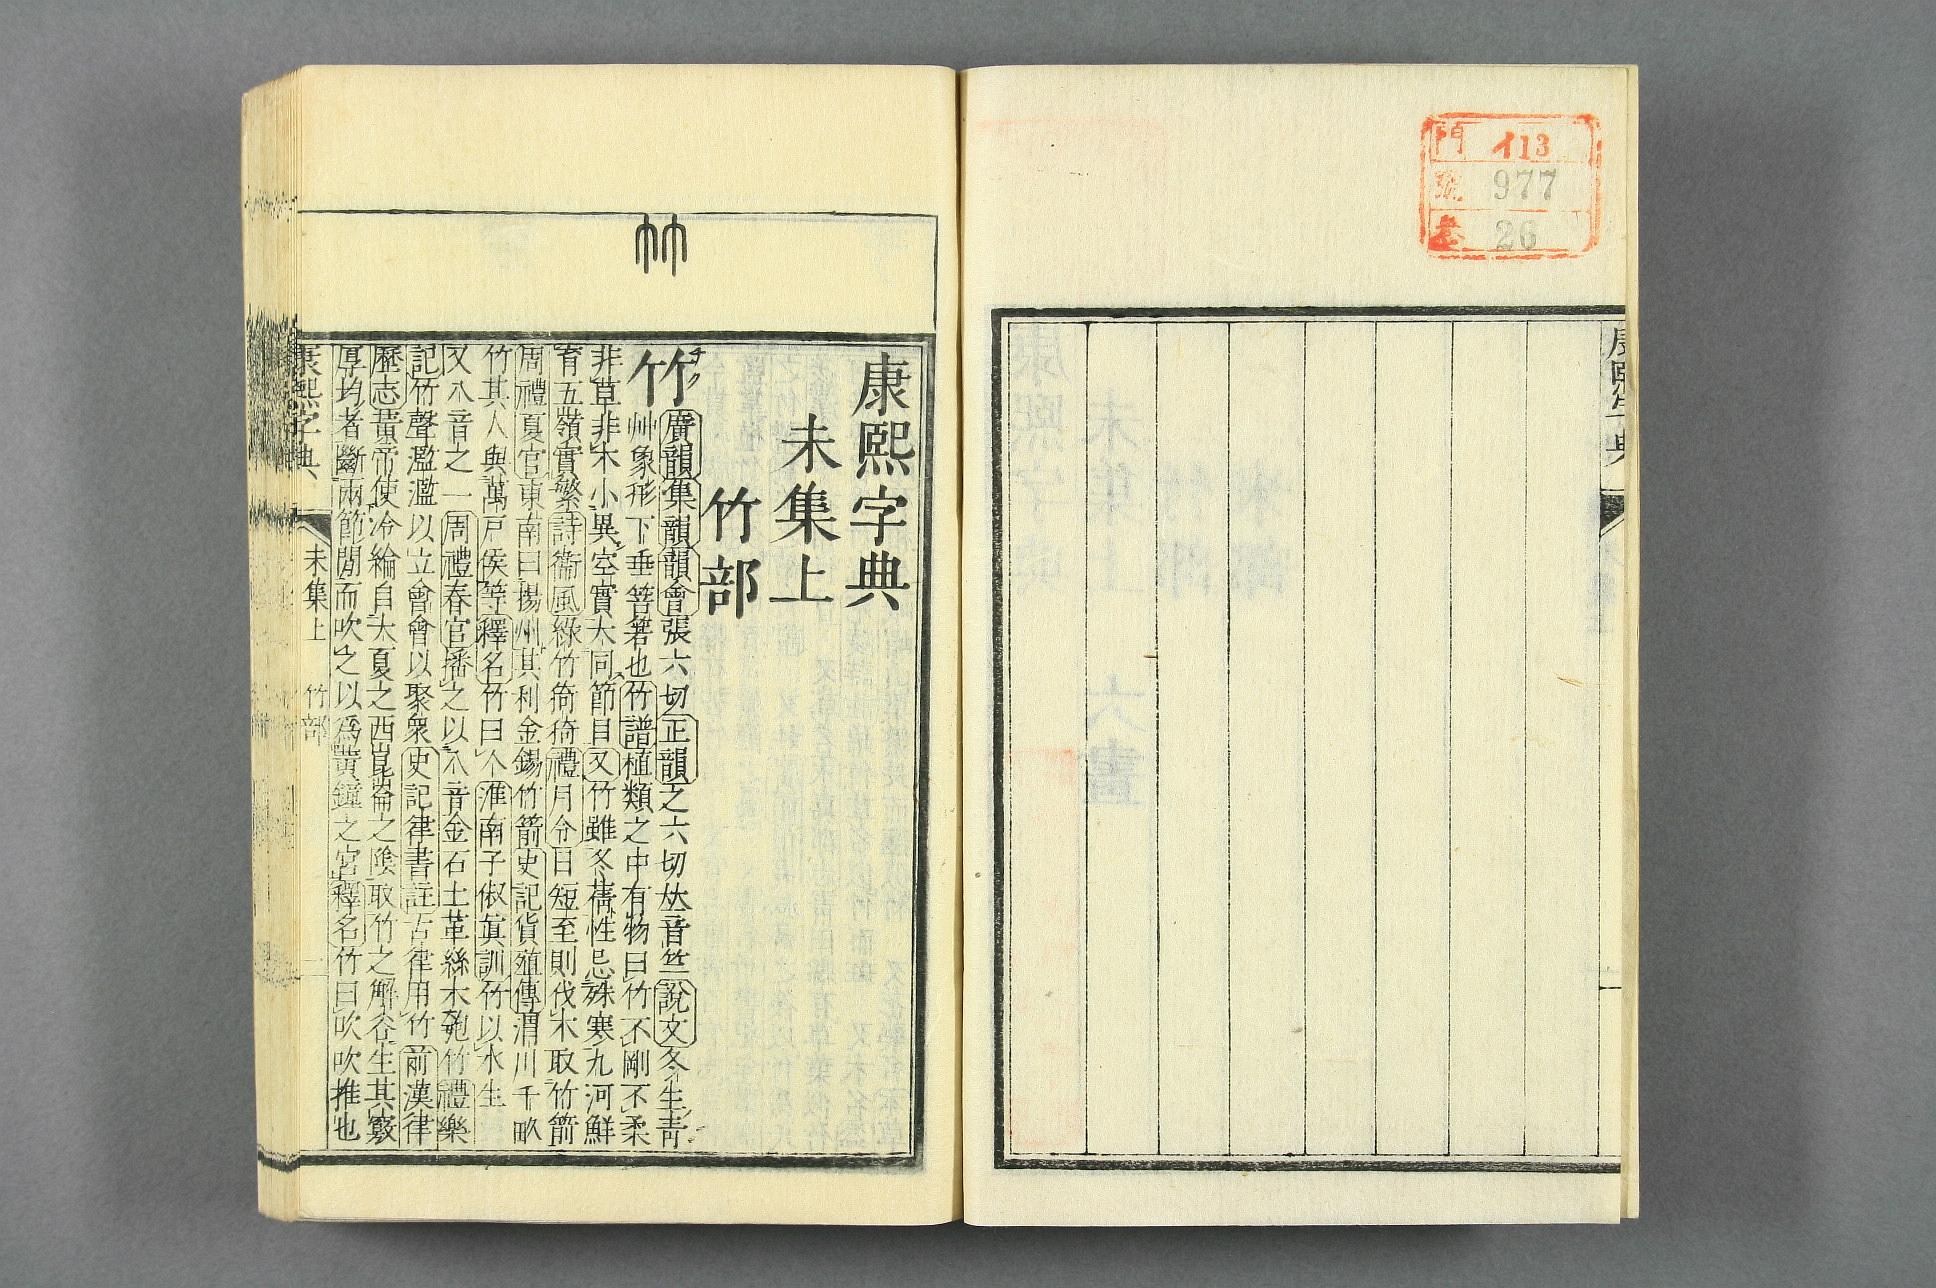 門 イ13
號 977
卷 26
康熙字典
竹
康熙字典
未集上
竹部
竹 チク 廣韻集韻韻會張六切正韻之六切𠀤音竺說文冬生靑
艸象形下垂箁箬也竹譜植類之中有物曰竹不剛不柔
非草非木小異空實大同節目又竹雖冬蒨性忌殊寒九河鮮
育五嶺實繁詩衞風綠竹猗猗禮月令日短至則伐木取竹箭
周禮夏官東南曰揚州其利金錫竹箭史記貨殖傳渭川千畝
竹其人與萬戸侯等釋名竹曰个淮南子俶眞訓竹以水生
又八音之一周禮春官播之以八音金石土革絲木匏竹禮樂
記竹聲濫濫以立會會以聚衆史記律書註古律用竹前漢律
歷志黃帝使泠綸自大夏之西崑崙之陰取竹之解谷生其竅
厚均者斷兩節閒而吹之以爲黃鐘之宮釋名竹曰吹吹推也
康熙字典 未集上 竹部 一